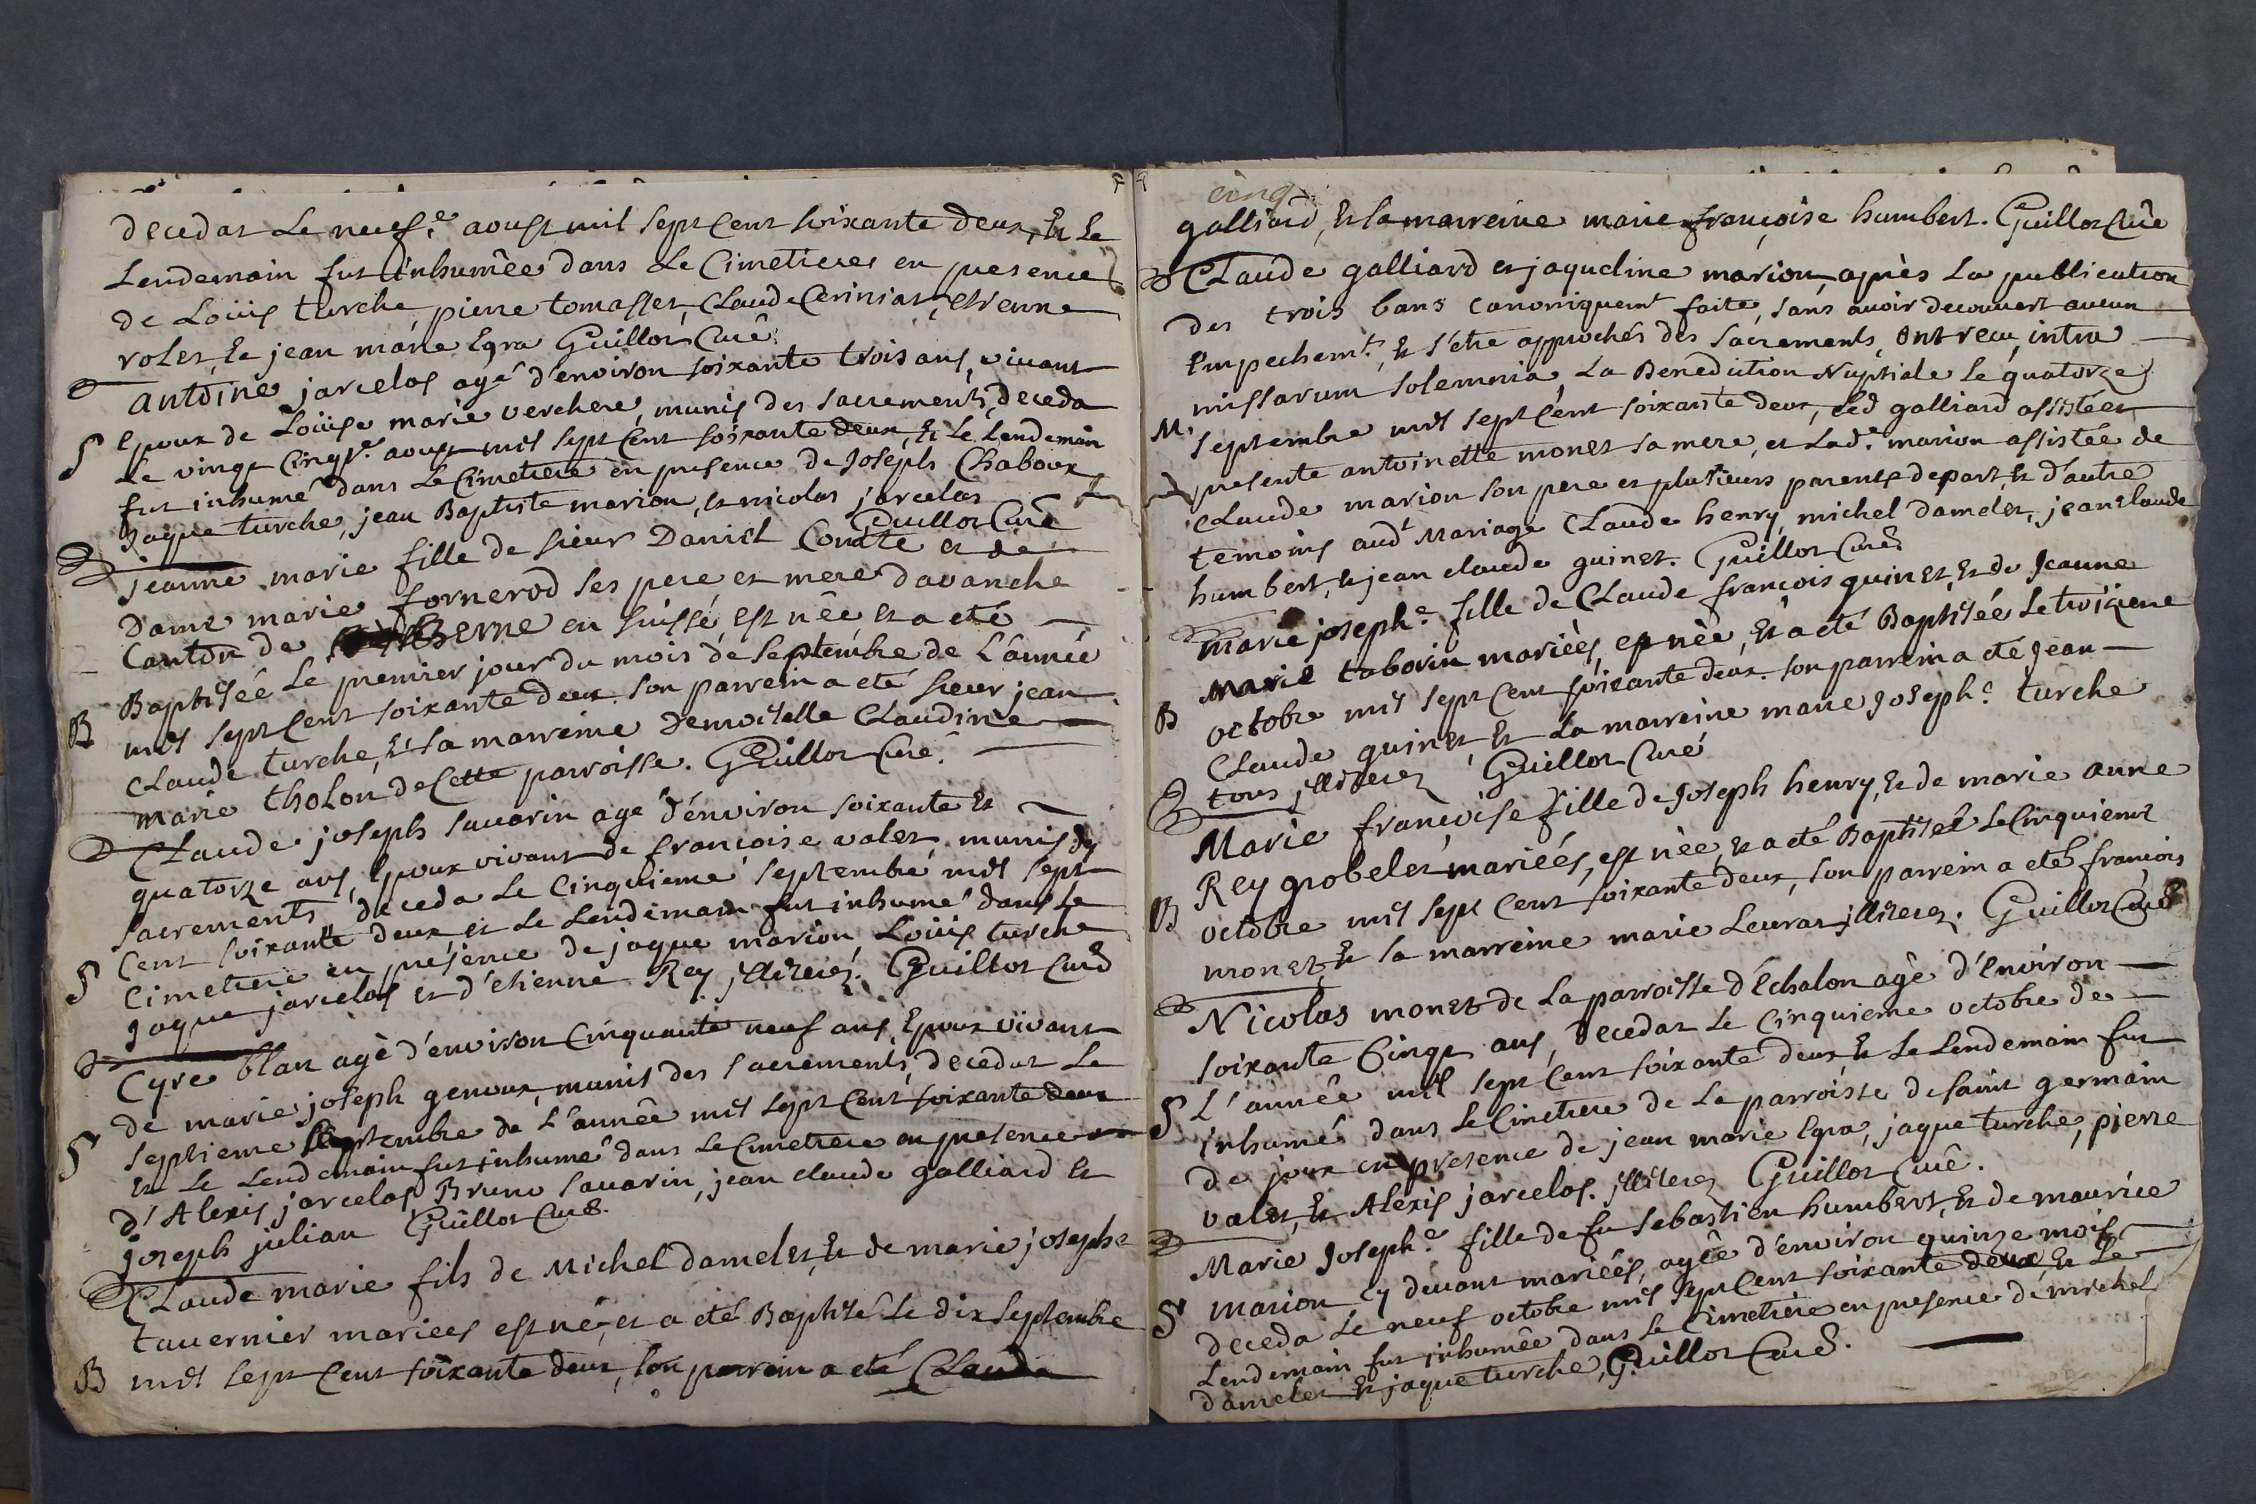 decedat Le neufe. aoust mil sept Cent soixante deux, Et Le
Lendemain fut inhumêe dans Le Cimetierer en presence
de Loüis turche, pierre tomasset, Claude Ceriniat, etienne
rolet, Et jean marie Egra Guillot Curê
antoine jarcelos agé d'environ soixante trois ans, vivant
S Epoux de Loüise marie verchere, munis des sacrements, deceda
Le vingt Cinqe. aoust mil sept Cent soixante deux, Et Le Lendemain
fut inhumé dans Le Cimetiere en presence de Joseph Chaboux
Jaque turche, jean Baptiste marion, et nicolas jarcelos
Guillot Curê
jeanne marie fille de sieur Daniel Comte et de
Dame marie fornerod ses pere et mere d'avanche
Canton de Berne en suisse, est née et a eté
Baptisée Le premier jour du mois de septembre de L'année
B mil sept Cent soixante deux son parrein a eté sieur jean
Claude turche, Et sa marreine demoiselle Claudine
marie tholon de Cette parroisse. Guillot Curê.
Claude joseph savarin agé d'environ soixante Et
quatorze ans, Epoux vivant de françoise valet, munis des
sacrements, deceda Le Cinquieme septembre mil sept
S Cent soixante deux, et Le Lendemain fut inhumé dans Le
Cimetiere en presence de jaque marion Loüis turche
Jaque jarcelos et d'etienne Rey, jlliterez. Guillot Curê
Cyre blan agé d'environ Cinquante neuf ans Epoux vivant
de marie joseph genoux, munis des sacrements, decedat Le
S septieme septembre de L'année mil sept Cent soixante deux
Et Le Lendemain fut inhumé dans Le Cimetiere en presence
d'Alexis jarcelos, Bruno savarin, jean claude galliard Et
joseph julian Guillot Curê.
Claude marie fils de Michel damelet, Et de marie josephe
tavernier mariees est né, et a eté Baptisé Le dix septembre
B mil sept Cent soixante deux, son parrein a eté Claude
cinq
galliard, Et la marreine marie françoise humbert. Guillot Curê
Claude galliard et jaqueline marion, après La publication
des trois bans canoniquemt faite, sans avoir decouvert aucun
Empechemt. Et s'être approchés des sacrements, ont recu, intra
missarum solemnia, La Benediction Nuptiale Le quatorze
M. septembre mil sept Cent soixante deux, Led galliard assistéer
presente antoinette monet sa mere, et Lade. marion assistée de
Claude marion son pere et plusieurs parents de part, Et d'autre
temoins audt Mariage Claude henry, michel damelet, jean claude
humbert, Et jean claude guinet. Guillot Curê
marie josephe. fille de Claude françois guinet, Et de Jeanne
Marie taborin mariées, est née, Et a eté Baptisée Le troisieme
B octobre mil sept Cent soixante deux. son parrein a eté jean
Claude guinet, Et La marreine marie Josephe. turche
tous jlliterez Guillot Curé
Marie françoise fille de Joseph henry, Et de marie anne
Rey grobelet mariées, est née, Et a eté Baptisée Le Cinquieme
B octobre mil sept Cent soixante deux, son parrein a eté françois
monet, Et la marreine marie Leurat jlliterez. Guillot Curê
Nicolas monet de La parroisse d'Echalon agê d'environ
soixante Cinq ans, decedat Le Cinquieme octobre de
S L'année mil sept Cent soixante deux Et Le Lendemain fut
inhumé dans Le Cimetiere de La parroisse de saint germain
de joux en presence de jean marie Egra, jaque turche, pierre
valet, Et Alexis jarcelos. jlliterez Guillot Curê.
Marie Josephe. fille de fu sebastien humbert, Et de maurice
S marion Cy devant mariées, agêe d'environ quinze mois
deceda Le neuf octobre mil sept Cent soixante deux Et Le
Lendemain fut inhumêe dans Le Cimetiere en presence de michel
damelet Et jaque turche, Guillot Curê.